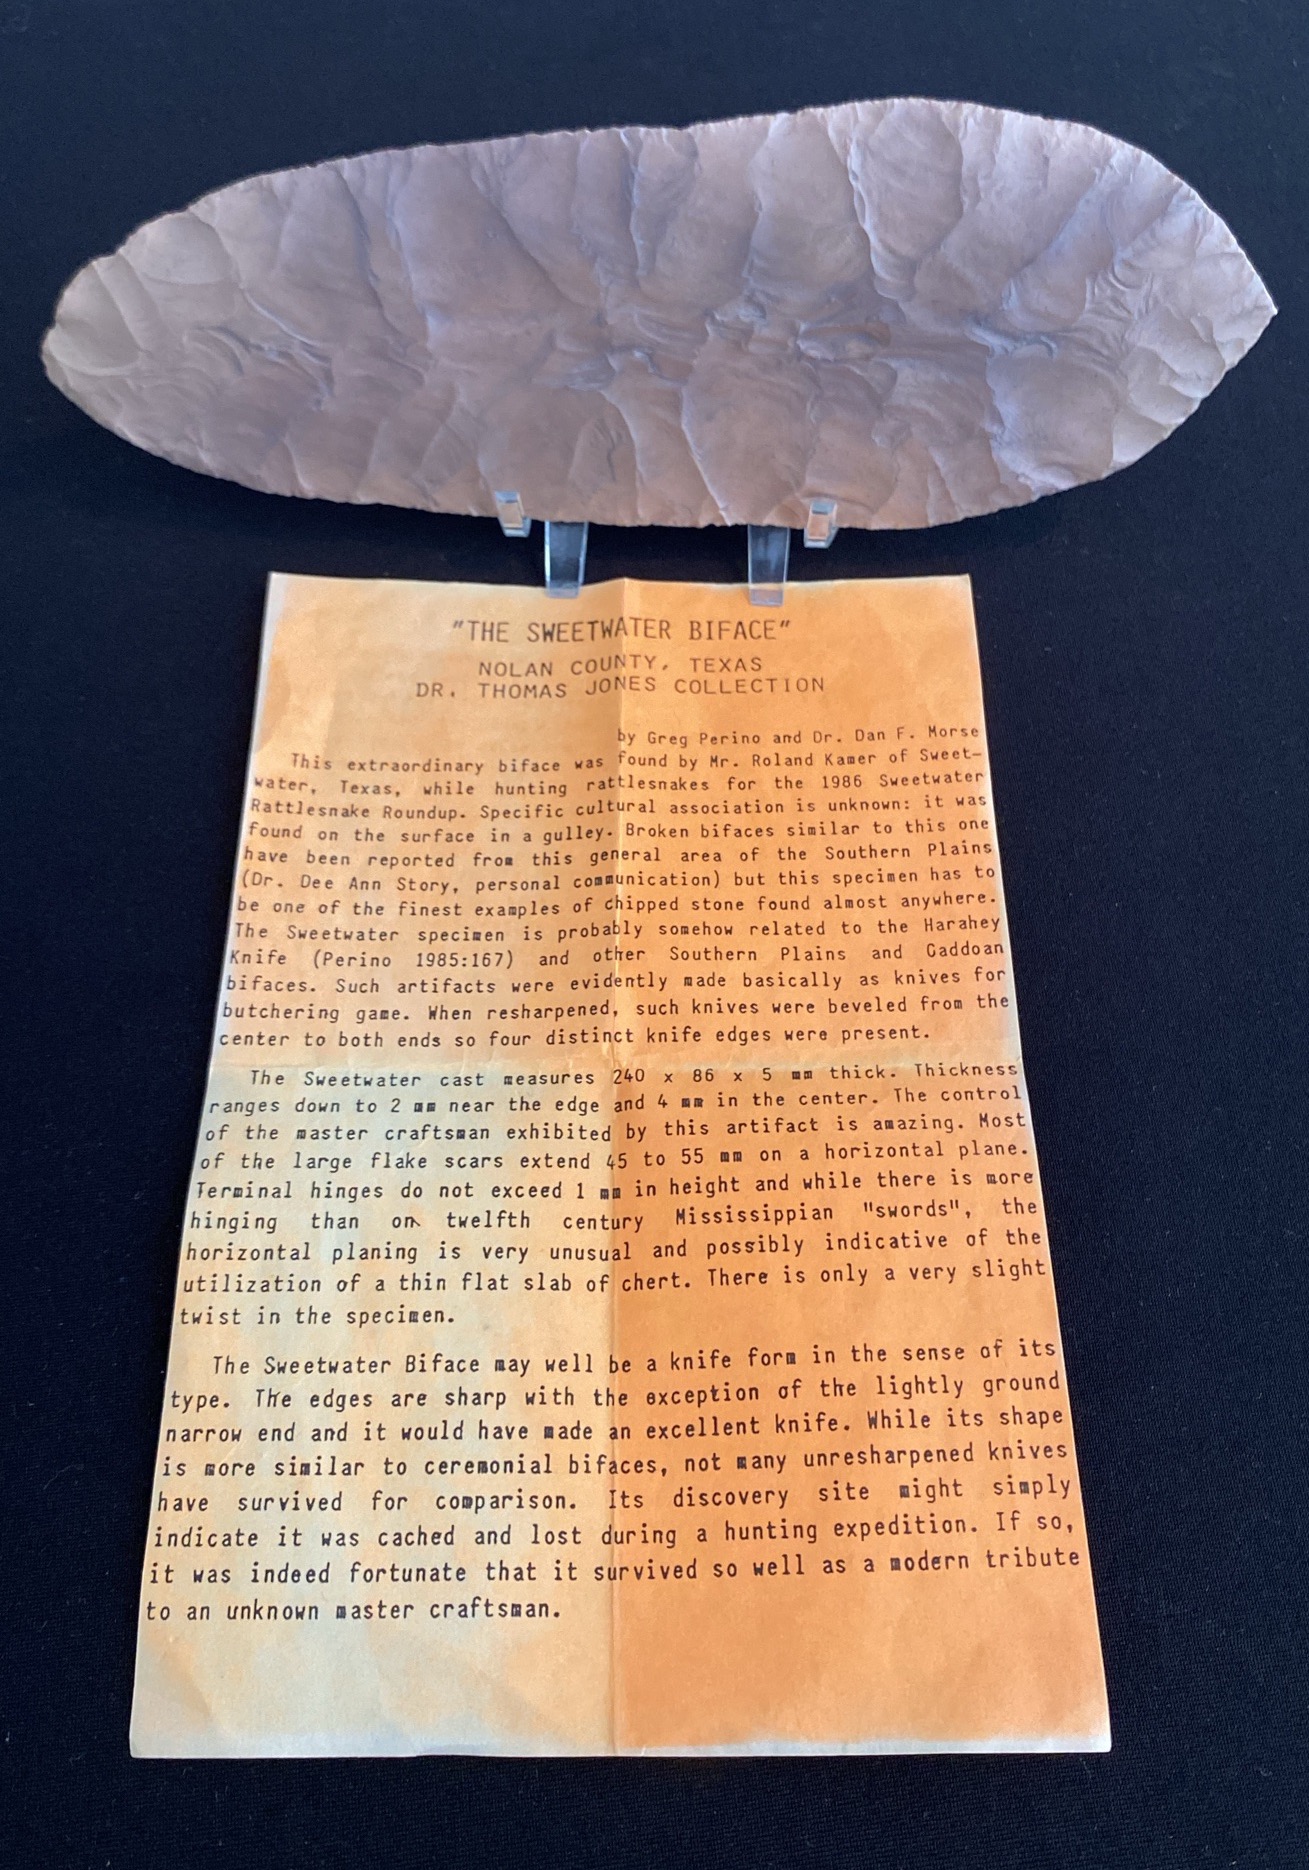 "THE SWEETWATER BIFACE"
NOLAN COUNTY, TEXAS
DR. THOMAS JONES COLLECTION
by Greg Perino and Dr. Dan F. Morse
This extraordinary biface was found by Mr. Roland Kamer of Sweet-
water, Texas, while hunting rattlesnakes for the 1986 Sweetwater
Rattlesnake Roundup. Specific cultural association is unknown: it was
found on the surface in a gulley. Broken bifaces similar to this one
have been reported from this general area of the Southern Plains
(Dr. Dee Ann Story, personal communication) but this specimen has to
be one of the finest examples of chipped stone found almost anywhere.
The Sweetwater specimen is probably somehow related to the Harahey
Knife (Perino 1985:167) and other Southern Plains and Caddoan
bifaces. Such artifacts were evidently made basically as knives for
butchering game. When resharpened, such knives were beveled from the
center to both ends so four distinct knife edges were present.
The Sweetwater cast measures 240 x 86 x 5 mm thick. Thickness
ranges down to 2 mm near the edge and 4 mm in the center. The control
of the master craftsman exhibited by this artifact is amazing. Most
of the large flake scars extend 45 to 55 mm on a horizontal plane.
Terminal hinges do not exceed 1 mm in height and while there is more
hinging than on twelfth century Mississippian "swords", the
horizontal planing is very unusual and possibly indicative of the
utilization of a thin flat slab of chert. There is only a very slight
twist in the specimen.
The Sweetwater Biface may well be a knife form in the sense of its
type. The edges are sharp with the exception of the lightly ground
narrow end and it would have made an excellent knife. While its shape
is more similar to ceremonial bifaces, not many unresharpened knives
have survived for comparison. Its discovery site might simply
indicate it was cached and lost during a hunting expedition. If so,
it was indeed fortunate that it survived so well as a modern tribute
to an unknown master craftsman.